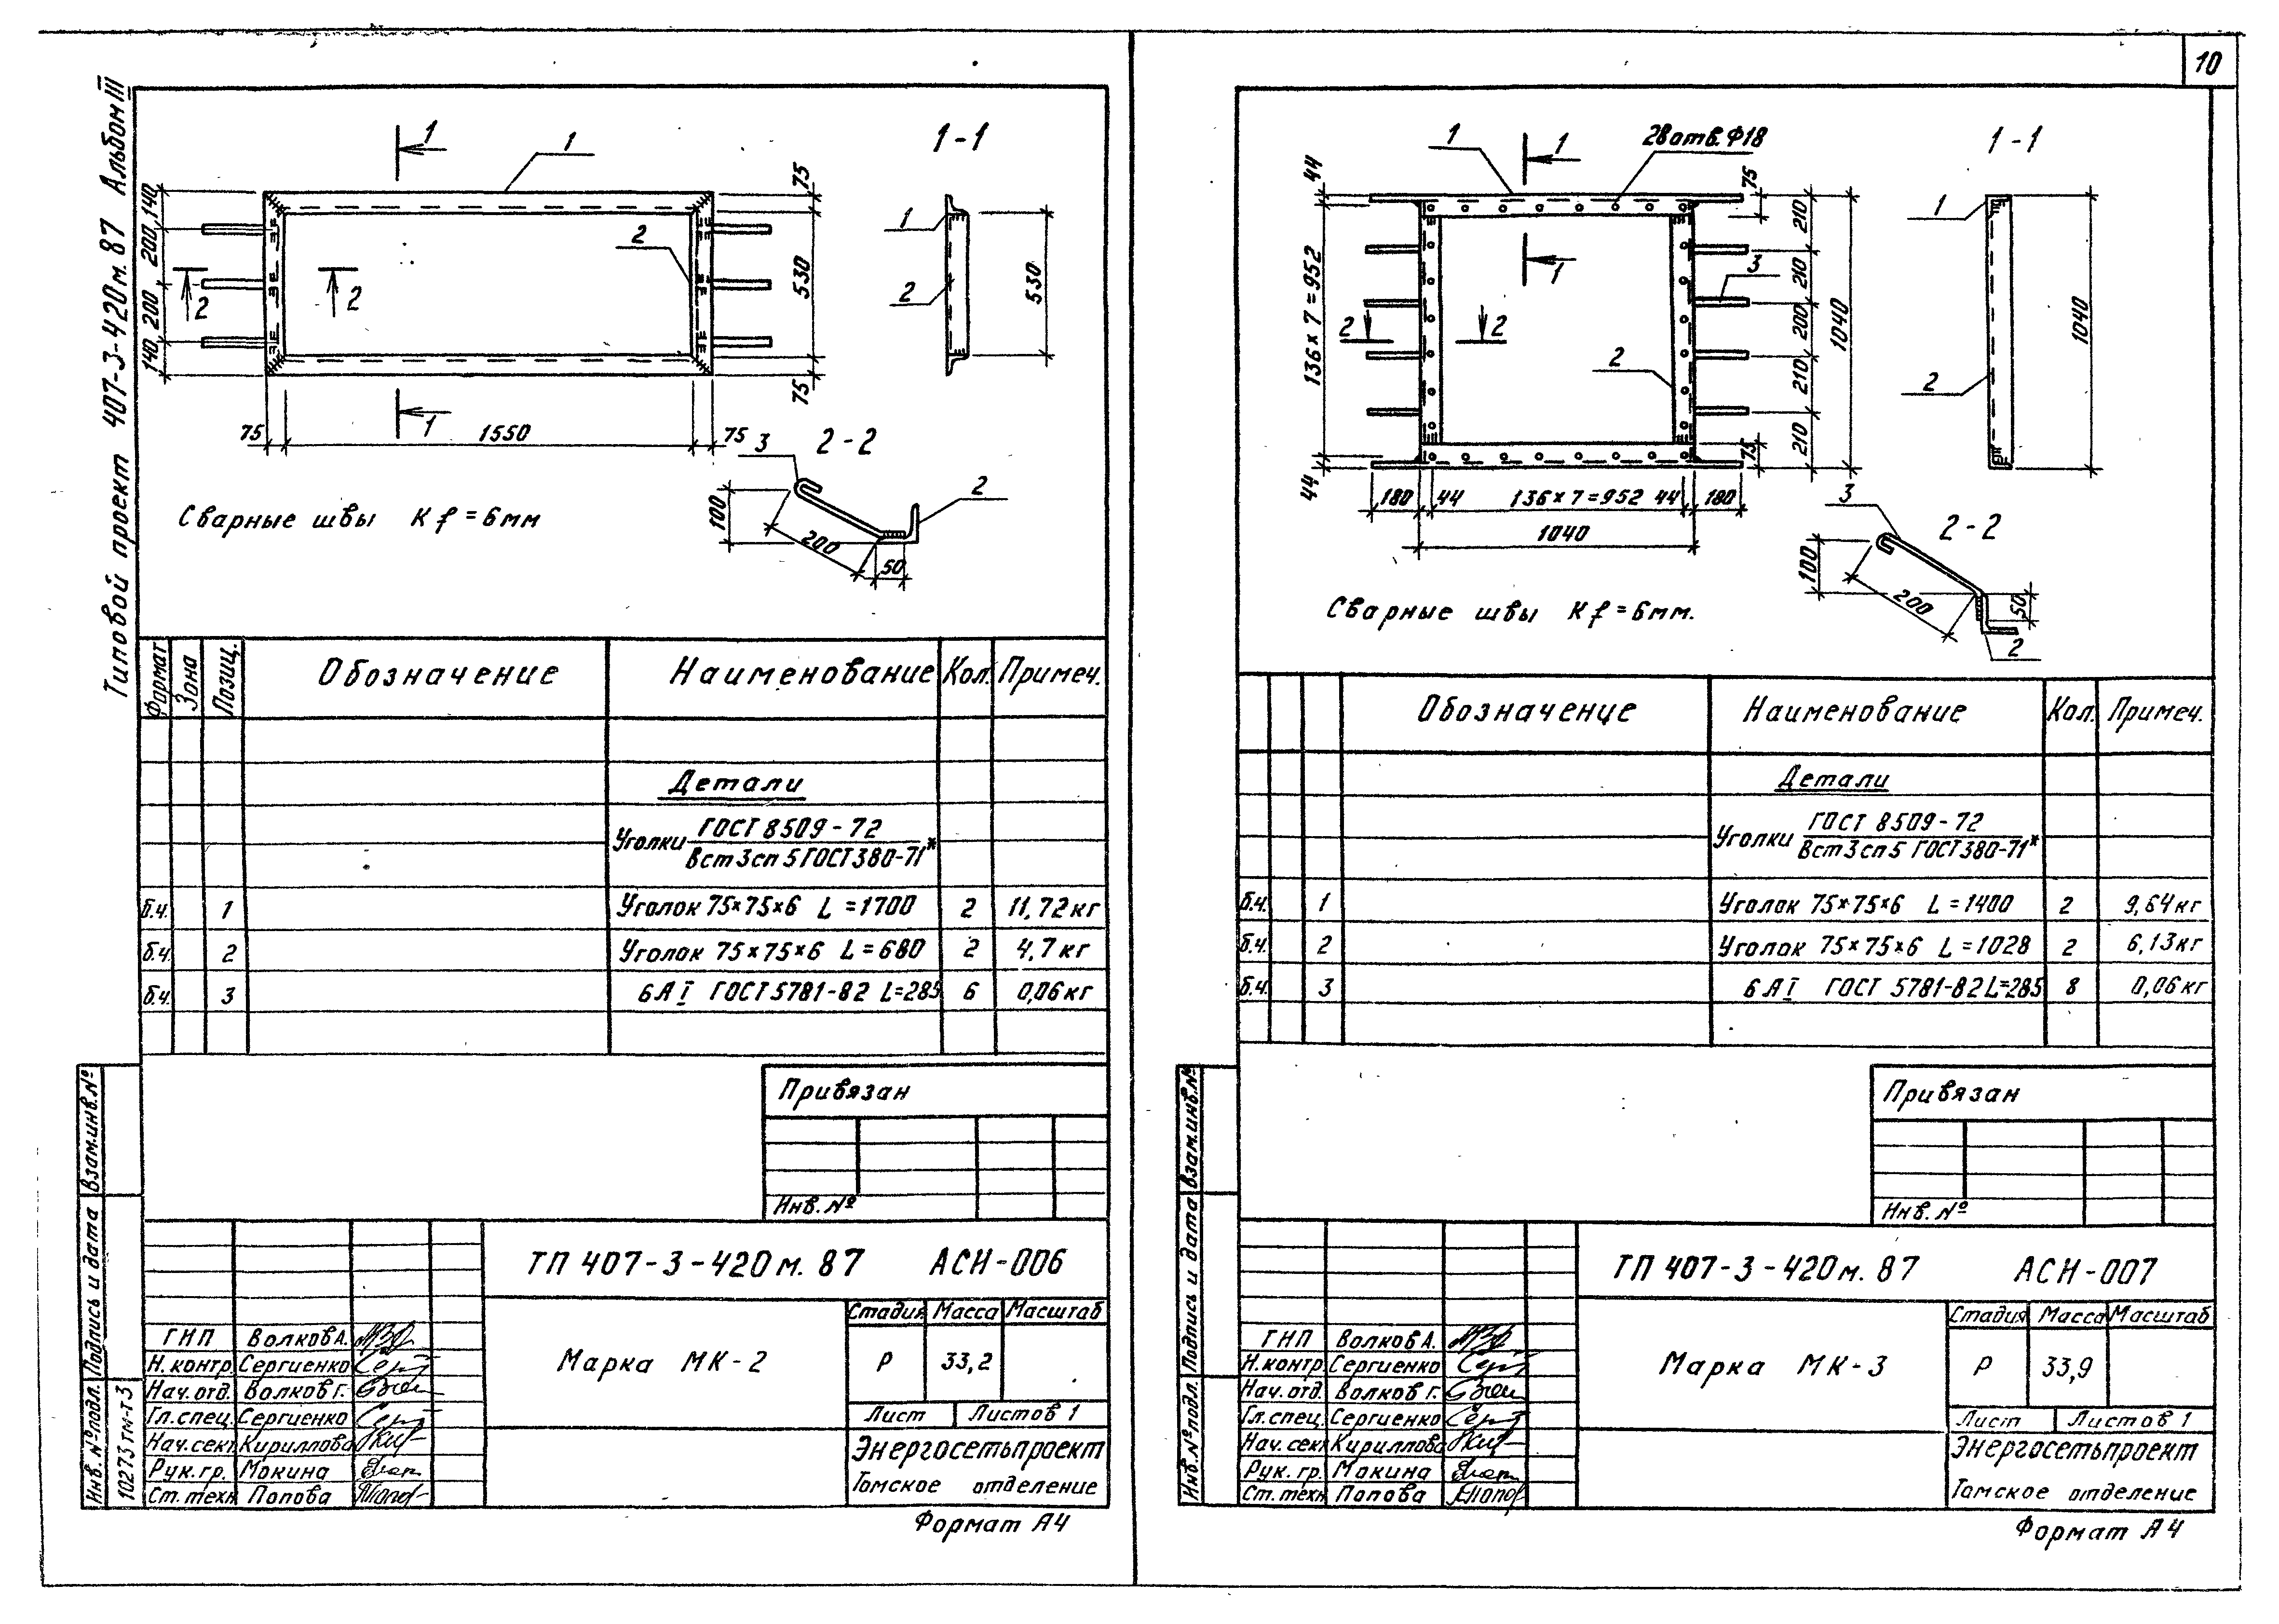 10
Типовой проект 407-3-420м.87 Альбом III
1
1
1-1
2
2
2
1
140
200
200
140
75
530
75
75
1550
75
1
2
530
2-2
3
2
100
200
50
Сварные швы Kf=6мм
Формат
Зона
Позиц.
Обозначение
Наименование
Кол.
Примеч.
Детали
Уголки ГОСТ 8509-72
Вст3сп5 ГОСТ380-71*
б.ч. 1 Уголок 75×75×6 L=1700 2 11,72кг
б.ч. 2 Уголок 75×75×6 L=680 2 4,7кг
б.ч. 3 6АI ГОСТ5781-82 L=285 6 0,06кг
Привязан
Инв.№
ТП 407-3-420м.87 АСИ-006
Марка МК-2
Стадия Масса Масштаб
Р 33,2
Лист Листов 1
Энергосетьпроект
Томское отделение
ГИП Волков А.
Н.контр Сергиенко
Нач.отд. Волков Г.
Гл.спец. Сергиенко
Нач.сект Кириллова
Рук.гр. Мокина
Ст.техн Попова
Взам.инв.№
Подпись и дата
Инв.№подл.
10273тм-т3
Формат А4
1
1
28отв.Ф18
1-1
44
136×7=952
44
75
210
210
200
210
210
1040
75
3
2
2
2
1
180
44
136×7=952
44
180
1040
1
2
1040
3
2-2
100
200
50
2
Сварные швы Kf=6мм.
Обозначение
Наименование
Кол.
Примеч.
Детали
Уголки ГОСТ 8509-72
Вст3сп5 ГОСТ380-71*
б.ч. 1 Уголок 75×75×6 L=1400 2 9,64кг
б.ч. 2 Уголок 75×75×6 L=1028 2 6,13кг
б.ч. 3 6АI ГОСТ 5781-82 L=285 8 0,06кг
Привязан
Инв.№
ТП 407-3-420м.87 АСИ-007
Марка МК-3
Стадия Масса Масштаб
Р 33,9
Лист Листов 1
Энергосетьпроект
Томское отделение
ГИП Волков А.
Н.контр Сергиенко
Нач.отд. Волков Г.
Гл.спец. Сергиенко
Нач.сект Кириллова
Рук.гр. Мокина
Ст.техн Попова
Взам.инв.№
Подпись и дата
Инв.№подл.
Формат А4